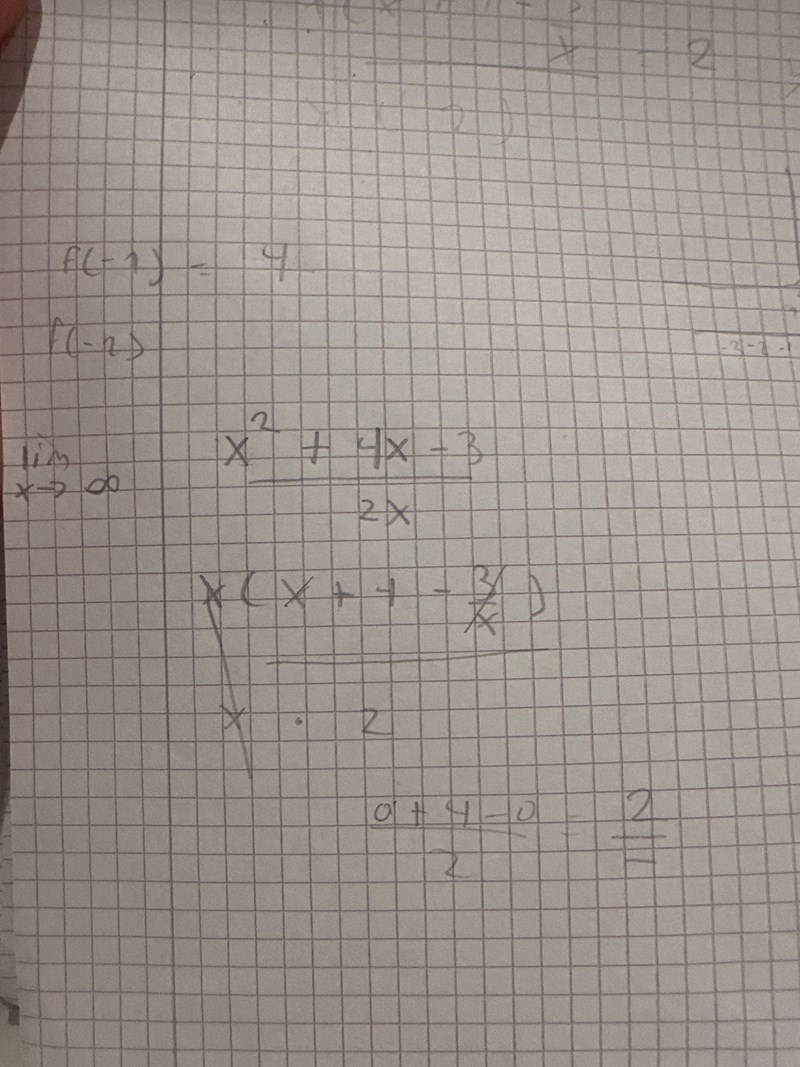 x 2
2 )
f(-1) = 4
f(-2)
lim x→∞ x² + 4x - 3
2x
x ( x + 4 - 3/x )
x · 2
0 + 4 - 0 = 2
2
-2 -1